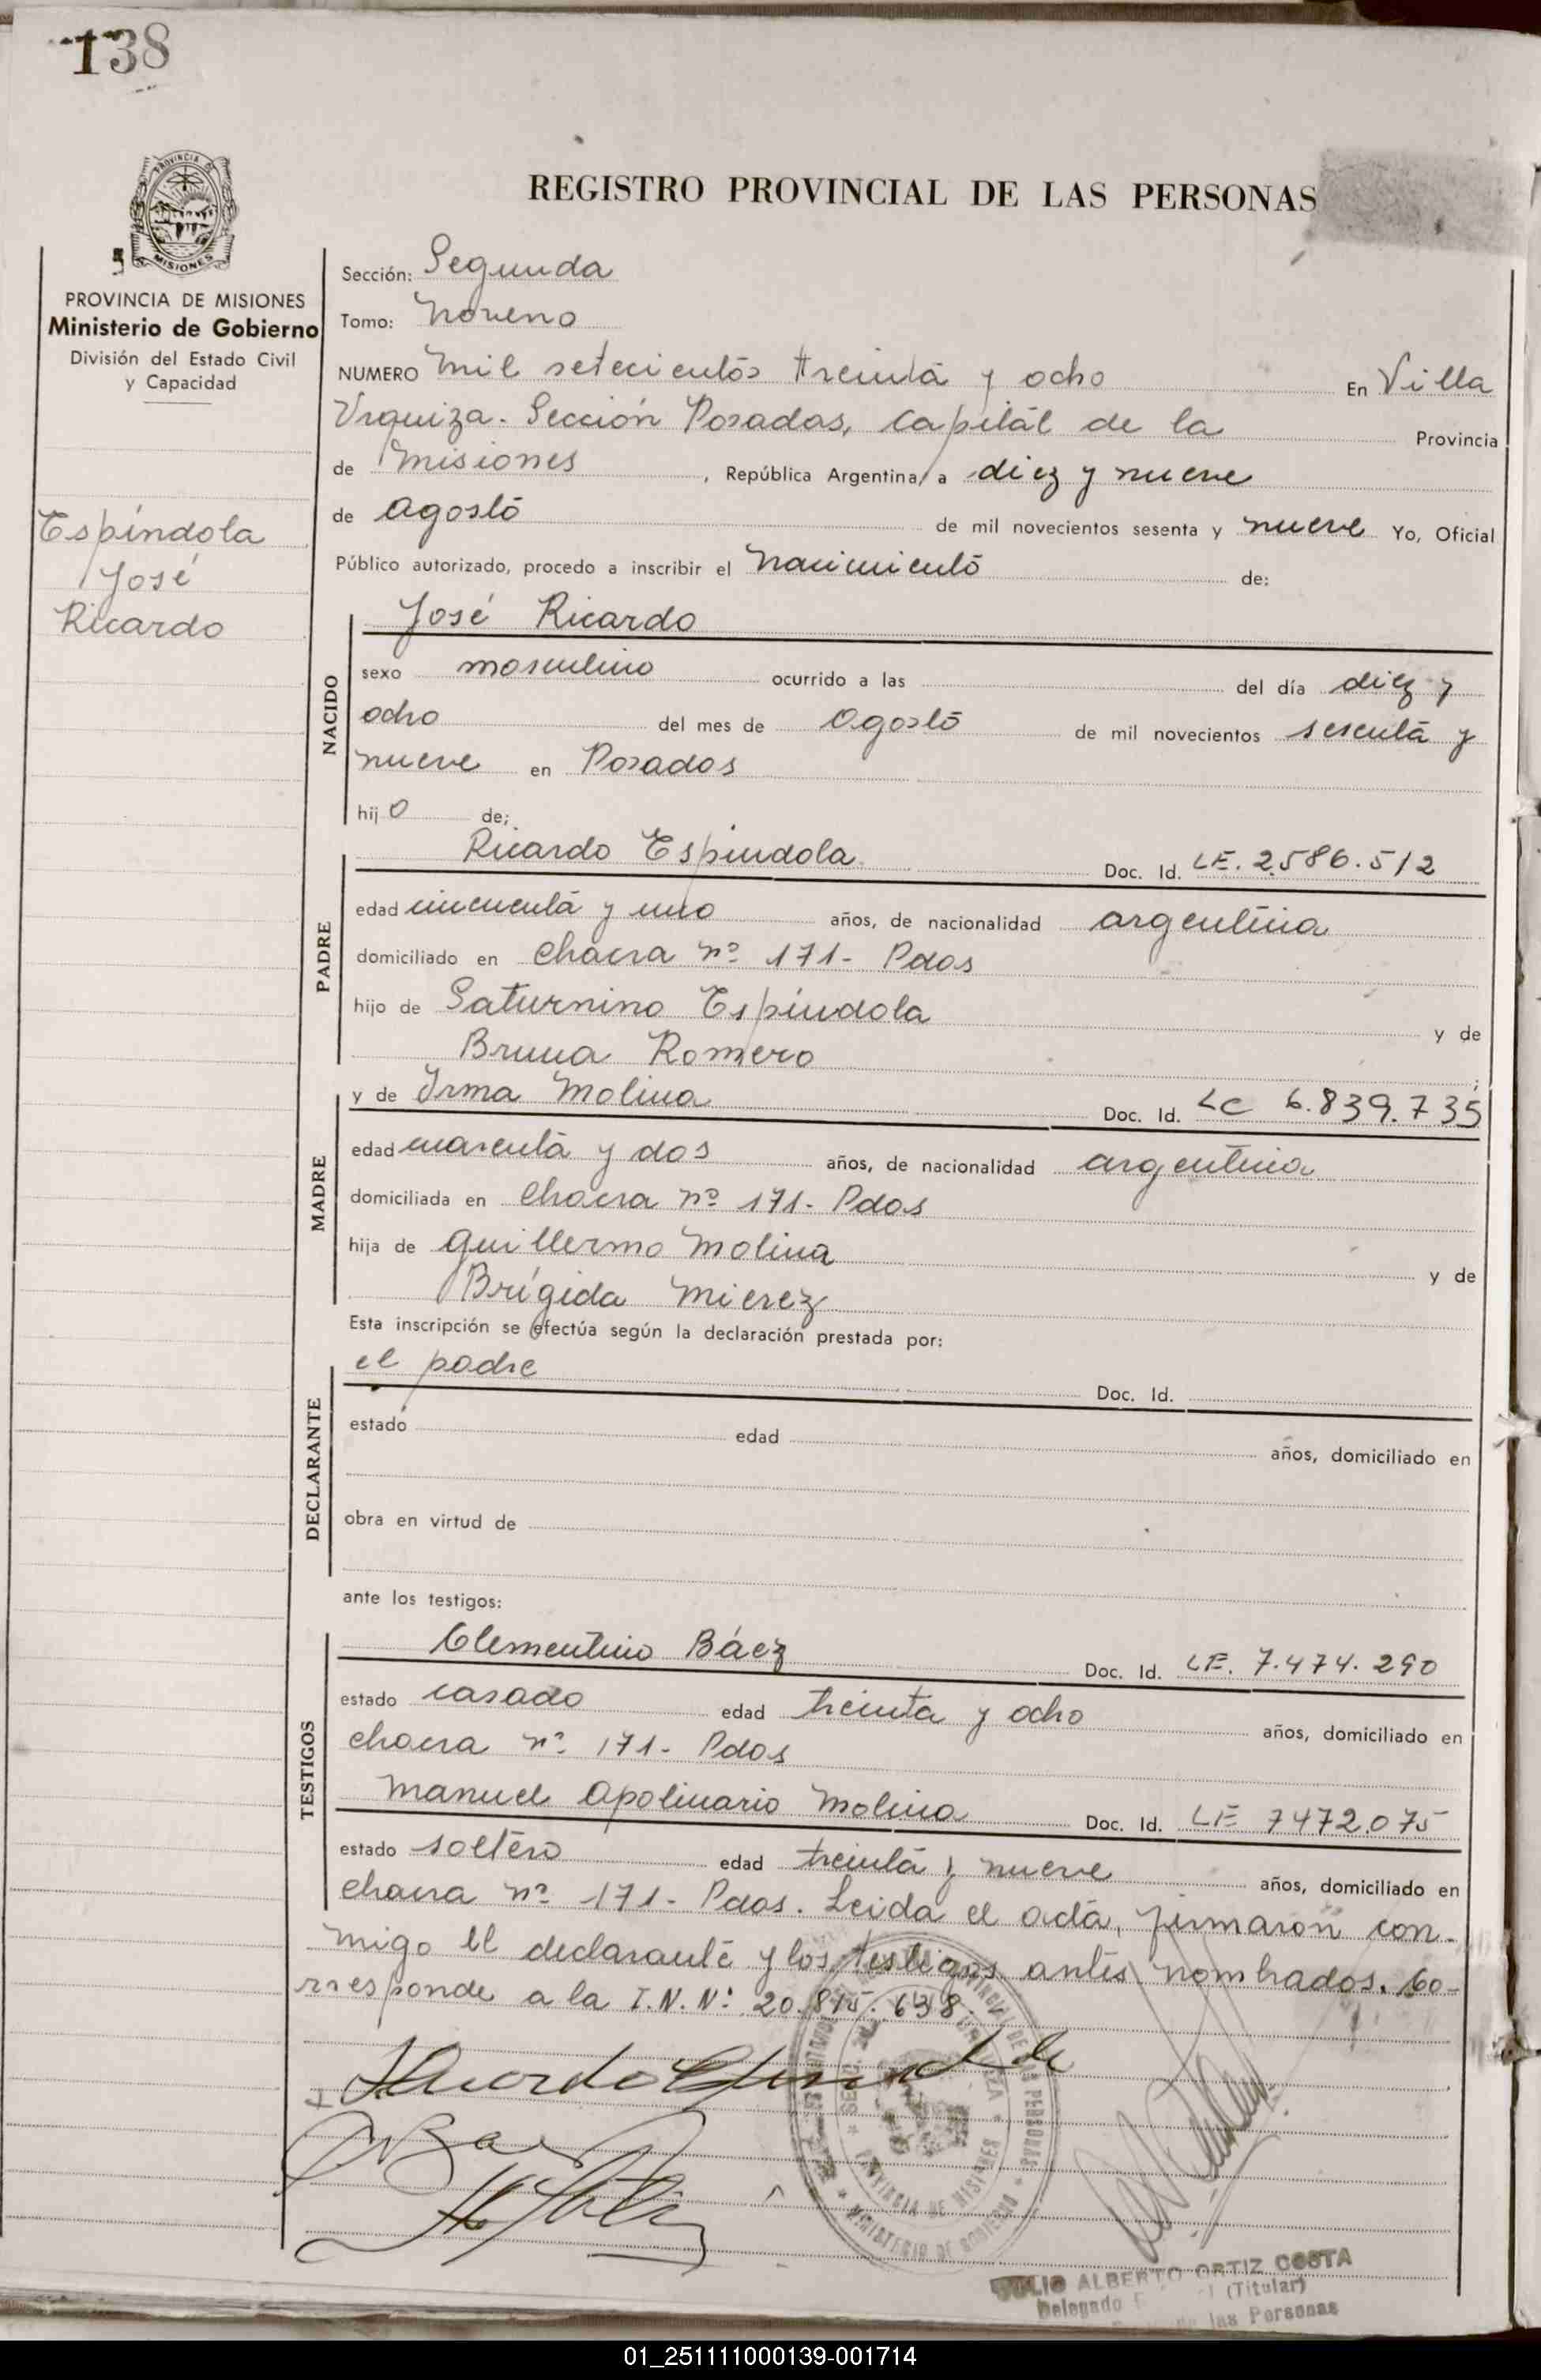 138
PROVINCIA DE MISIONES
Ministerio de Gobierno
División del Estado Civil
y Capacidad
Espíndola
José
Ricardo
REGISTRO PROVINCIAL DE LAS PERSONAS
Sección: Segunda
Tomo: Noveno
NUMERO mil setecientos treinta y ocho En Villa
Urquiza. Sección Posadas, Capital de la Provincia
de Misiones, República Argentina, a diez y nueve
de Agosto de mil novecientos sesenta y nueve Yo, Oficial
Público autorizado, procedo a inscribir el nacimiento de:
NACIDO
José Ricardo
sexo masculino ocurrido a las del día diez y
ocho del mes de Agosto de mil novecientos sesenta y
nueve en Posadas
hijo de;
PADRE
Ricardo Espíndola Doc. Id. LE. 2.586.512
edad cincuenta y uno años, de nacionalidad argentina
domiciliado en Chacra nº 171- Pdas
hijo de Saturnino Espíndola y de
Bruna Romero
MADRE
y de Irma Molina Doc. Id. LC 6.839.735
edad cuarenta y dos años, de nacionalidad argentina
domiciliada en Chacra nº 171- Pdas
hija de Guillermo Molina y de
Brígida Mierez
Esta inscripción se efectúa según la declaración prestada por:
DECLARANTE
el padre Doc. Id.
estado edad años, domiciliado en
obra en virtud de
ante los testigos:
TESTIGOS
Clementino Báez Doc. Id. LE. 7.474.290
estado casado edad treinta y ocho años, domiciliado en
chacra nº 171- Pdas
Manuel Apolinario Molina Doc. Id. LE 7472.075
estado soltero edad treinta y nueve años, domiciliado en
chacra nº 171- Pdas. Leida el acta, firmaron con-
migo el declarante y los testigos antes nombrados. Co-
rresponde a la I.N.Nº 20.815.638.
PROVINCIA DE MISIONES
MINISTERIO DE GOBIERNO
JULIO ALBERTO ORTIZ COSTA
(Titular)
Delegado
las Personas
01_251111000139-001714